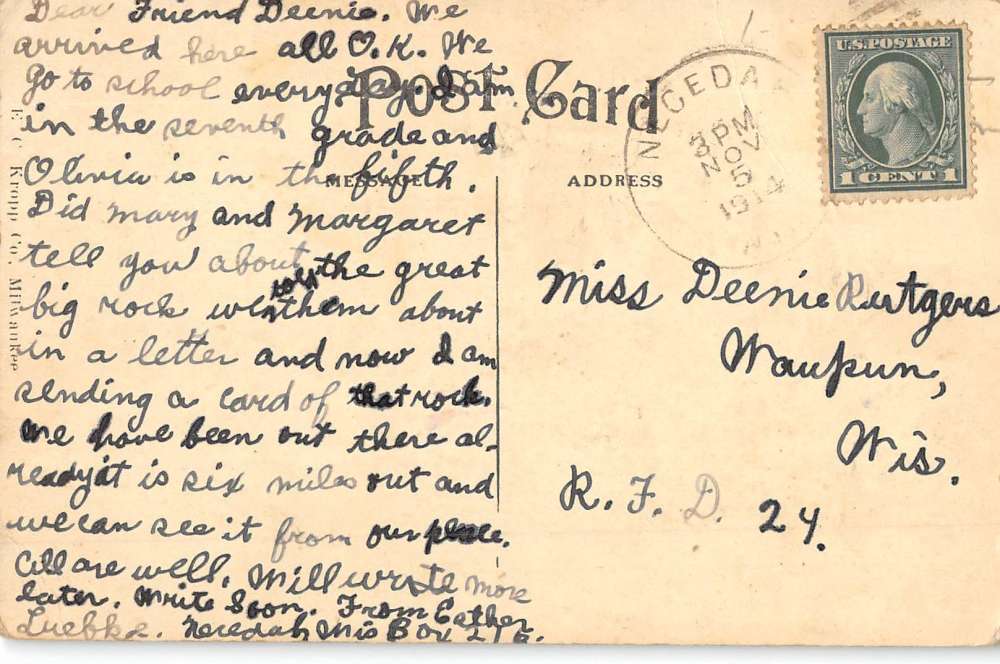 Dear Friend Deenie. We
arrived here all O.K. We
go to school everyday. I am
in the seventh grade and
Olivia is in the fifth.
Did Mary and Margaret
tell you about the great
big rock we wrote them about
in a letter and now I am
sending a card of that rock.
We have been out there al-
ready it is six miles out and
we can see it from our place.
All are well. Will write more
later. Write Soon. From Esther
Luebke. Necedah Wis Box 216.
E. C. Kropp Co. Milwaukee
Post Card
MESSAGE
ADDRESS
NECEDAH
3 PM
NOV
5
1914
WIS.
U.S. POSTAGE
1 CENT 1
Miss Deenie Rutgers
Waupun,
Wis.
R. F. D. 24.